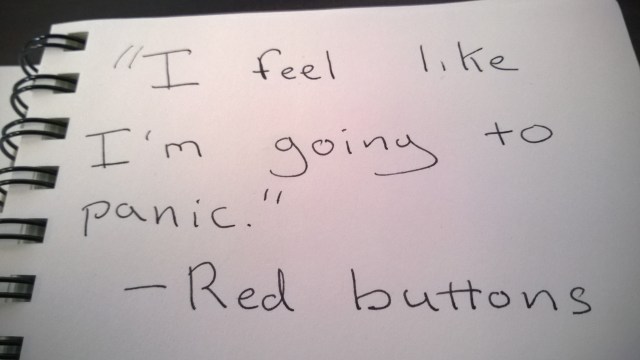 "I feel like
I'm going to
panic."
– Red buttons